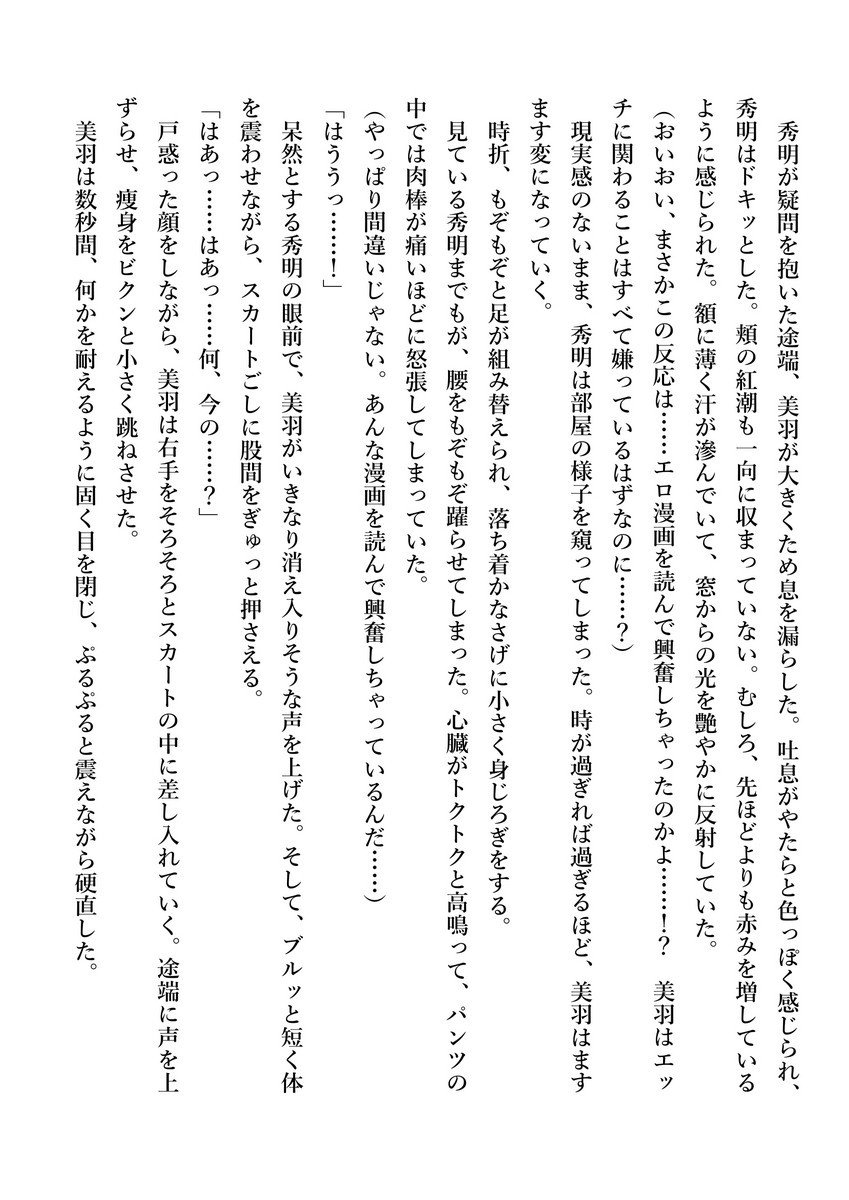 秀明が疑問を抱いた途端、美羽が大きくため息を漏らした。吐息がやたらと色っぽく感じられ、
秀明はドキッとした。頬の紅潮も一向に収まっていない。むしろ、先ほどよりも赤みを増している
ように感じられた。額に薄く汗が滲んでいて、窓からの光を艶やかに反射していた。
（おいおい、まさかこの反応は……エロ漫画を読んで興奮しちゃったのかよ……！？　美羽はエッ
チに関わることはすべて嫌っているはずなのに……？）
　現実感のないまま、秀明は部屋の様子を窺ってしまった。時が過ぎれば過ぎるほど、美羽はます
ます変になっていく。
　時折、もぞもぞと足が組み替えられ、落ち着かなさげに小さく身じろぎをする。
　見ている秀明までもが、腰をもぞもぞ躍らせてしまった。心臓がトクトクと高鳴って、パンツの
中では肉棒が痛いほどに怒張してしまっていた。
（やっぱり間違いじゃない。あんな漫画を読んで興奮しちゃっているんだ……）
「はううっ……！」
　呆然とする秀明の眼前で、美羽がいきなり消え入りそうな声を上げた。そして、ブルッと短く体
を震わせながら、スカートごしに股間をぎゅっと押さえる。
「はあっ……はあっ……何、今の……？」
　戸惑った顔をしながら、美羽は右手をそろそろとスカートの中に差し入れていく。途端に声を上
ずらせ、痩身をビクンと小さく跳ねさせた。
　美羽は数秒間、何かを耐えるように固く目を閉じ、ぷるぷると震えながら硬直した。